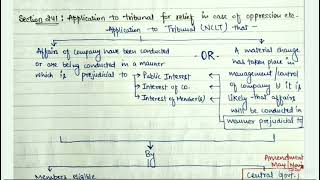 Section 241: Application to tribunal for relief in case of oppression etc.
Application to Tribunal (NCLT) that
Affairs of Company have been conducted
or are being conducted in a manner
which is prejudicial to
Public Interest
Interest of Co.
Interest of Member(s)
-OR-
A material change
has taken place in
management/control
of company & it is
likely that affairs
will be conducted in
manner prejudicial to
By
Members eligible
Amendment
May
Central Govt.